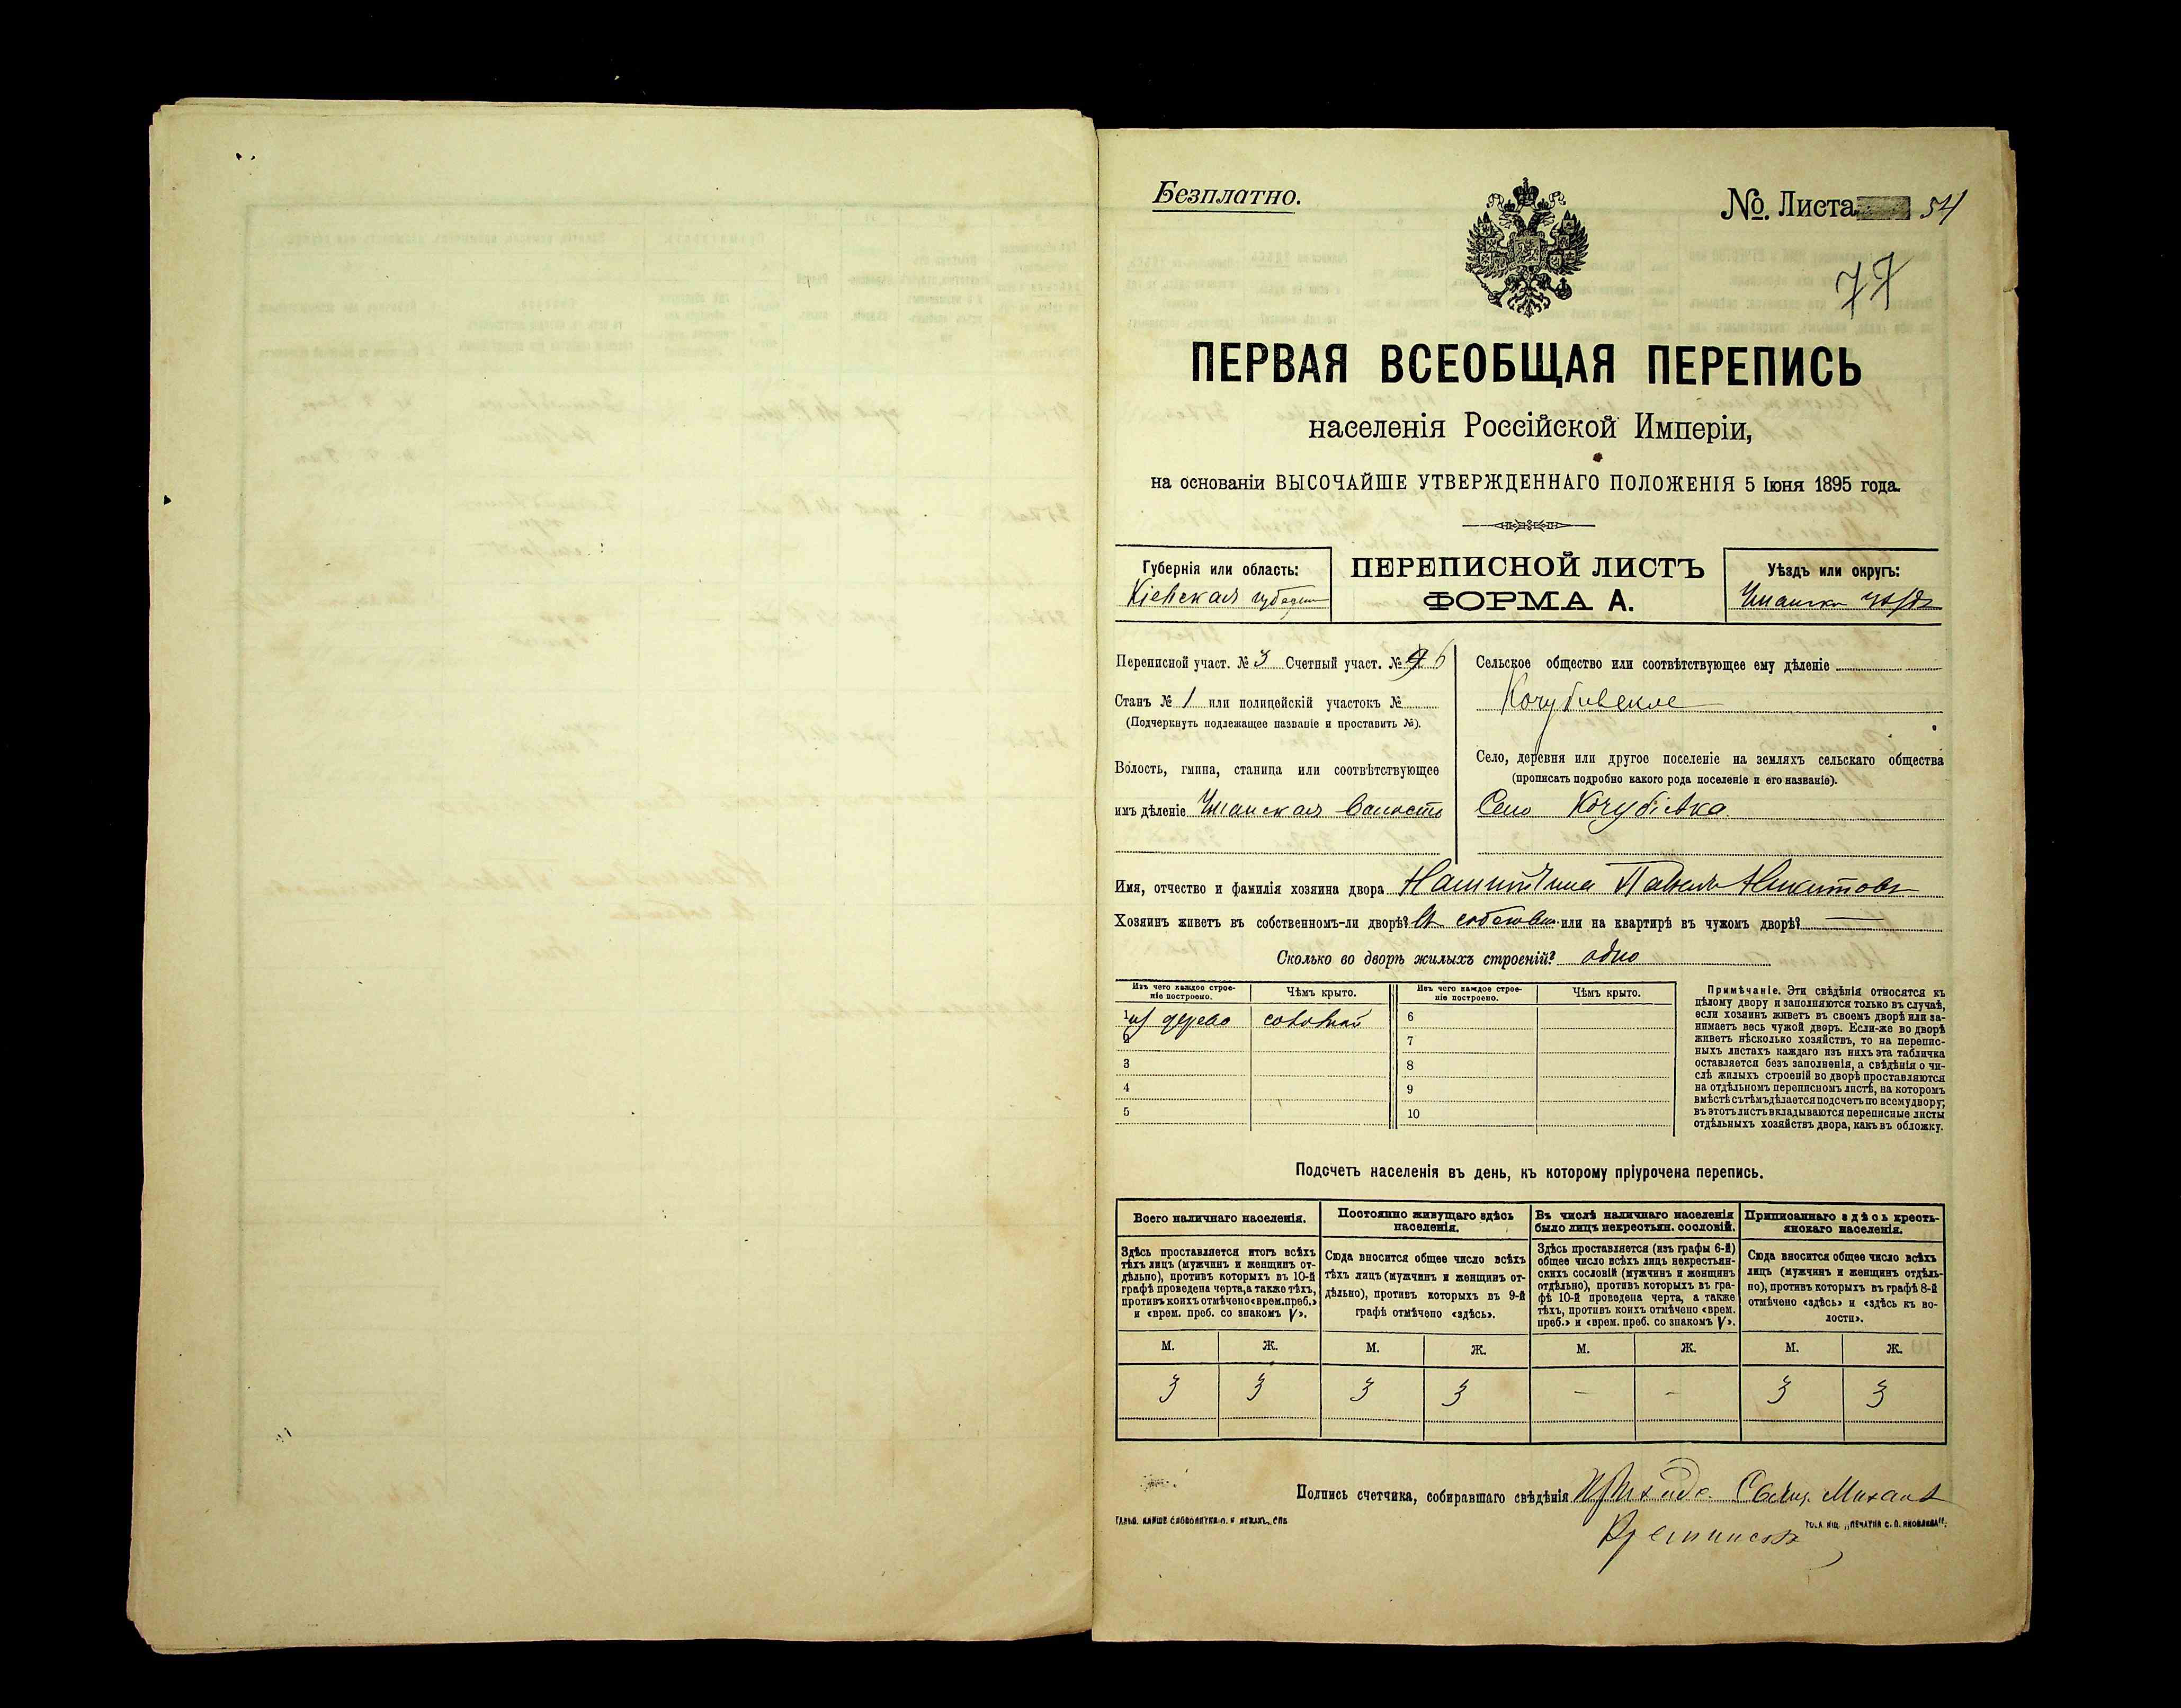 Безплатно.
№. Листа 54
77
ПЕРВАЯ ВСЕОБЩАЯ ПЕРЕПИСЬ
населенія Россійской Имперіи,
на основаніи ВЫСОЧАЙШЕ УТВЕРЖДЕННАГО ПОЛОЖЕНІЯ 5 Іюня 1895 года.
Губернія или область:
Кіевская губернія
ПЕРЕПИСНОЙ ЛИСТЪ
ФОРМА А.
Уѣздъ или округъ:
Уманскій уѣздъ
Переписной участ. № 3 Счетный участ. № 6
Станъ № 1 или полицейскій участокъ №
(Подчеркнуть подлежащее названіе и проставить №).
Волость, гмина, станица или соотвѣтствующее
имъ дѣленіе Уманская Волость
Сельское общество или соотвѣтствующее ему дѣленіе
Кочубивское
Село, деревня или другое поселеніе на земляхъ сельскаго общества
(прописать подробно какого рода поселеніе и его названіе).
Село Кочубіевка
Имя, отчество и фамилія хозяина двора Павелъ Никитовъ
Хозяинъ живетъ въ собственномъ-ли дворѣ? въ собствен. или на квартирѣ въ чужомъ дворѣ? —
Сколько во дворѣ жилыхъ строеній? одно
Изъ чего каждое строе-
ніе построено.
Чѣмъ крыто.
Изъ чего каждое строе-
ніе построено.
Чѣмъ крыто.
1 из дерево соломой 6
2 7
3 8
4 9
5 10
Примѣчаніе. Эти свѣдѣнія относятся къ
цѣлому двору и заполняются только въ случаѣ,
если хозяинъ живетъ въ своемъ дворѣ или за-
нимаетъ весь чужой дворъ. Если-же во дворѣ
живетъ нѣсколько хозяйствъ, то на перепис-
ныхъ листахъ каждаго изъ нихъ эта табличка
оставляется безъ заполненія, а свѣдѣнія о чи-
слѣ жилыхъ строеній во дворѣ проставляются
на отдѣльномъ переписномъ листѣ, на которомъ
вмѣстѣ съ тѣмъ дѣлается подсчетъ по всему двору;
въ этотъ листъ вкладываются переписные листы
отдѣльныхъ хозяйствъ двора, какъ въ обложку.
Подсчетъ населенія въ день, къ которому пріурочена перепись.
Всего наличнаго населенія.
Здѣсь проставляется итогъ всѣхъ
тѣхъ лицъ (мужчинъ и женщинъ от-
дѣльно), противъ которыхъ въ 10-й
графѣ проведена черта, а также тѣхъ,
противъ коихъ отмѣчено «врем. преб.»
и «врем. преб. со знакомъ V».
Постоянно живущаго здѣсь
населенія.
Сюда вносится общее число всѣхъ
тѣхъ лицъ (мужчинъ и женщинъ от-
дѣльно), противъ которыхъ въ 9-й
графѣ отмѣчено «здѣсь».
Въ числѣ наличнаго населенія
было лицъ некрестьян. сословій.
Здѣсь проставляется (изъ графы 6-й)
общее число всѣхъ лицъ некрестьян-
скихъ сословій (мужчинъ и женщинъ
отдѣльно), противъ которыхъ въ гра-
фѣ 10-й проведена черта, а также
тѣхъ, противъ коихъ отмѣчено «врем.
преб.» и «врем. преб. со знакомъ V».
Приписаннаго здѣсь кресть-
янскаго населенія.
Сюда вносится общее число всѣхъ
лицъ (мужчинъ и женщинъ отдѣль-
но), противъ которыхъ въ графѣ 8-й
отмѣчено «здѣсь» и «здѣсь къ во-
лости».
М. Ж. М. Ж. М. Ж. М. Ж.
3 3 3 3 - - 3 3
Подпись счетчика, собиравшаго свѣдѣнія Михаилъ